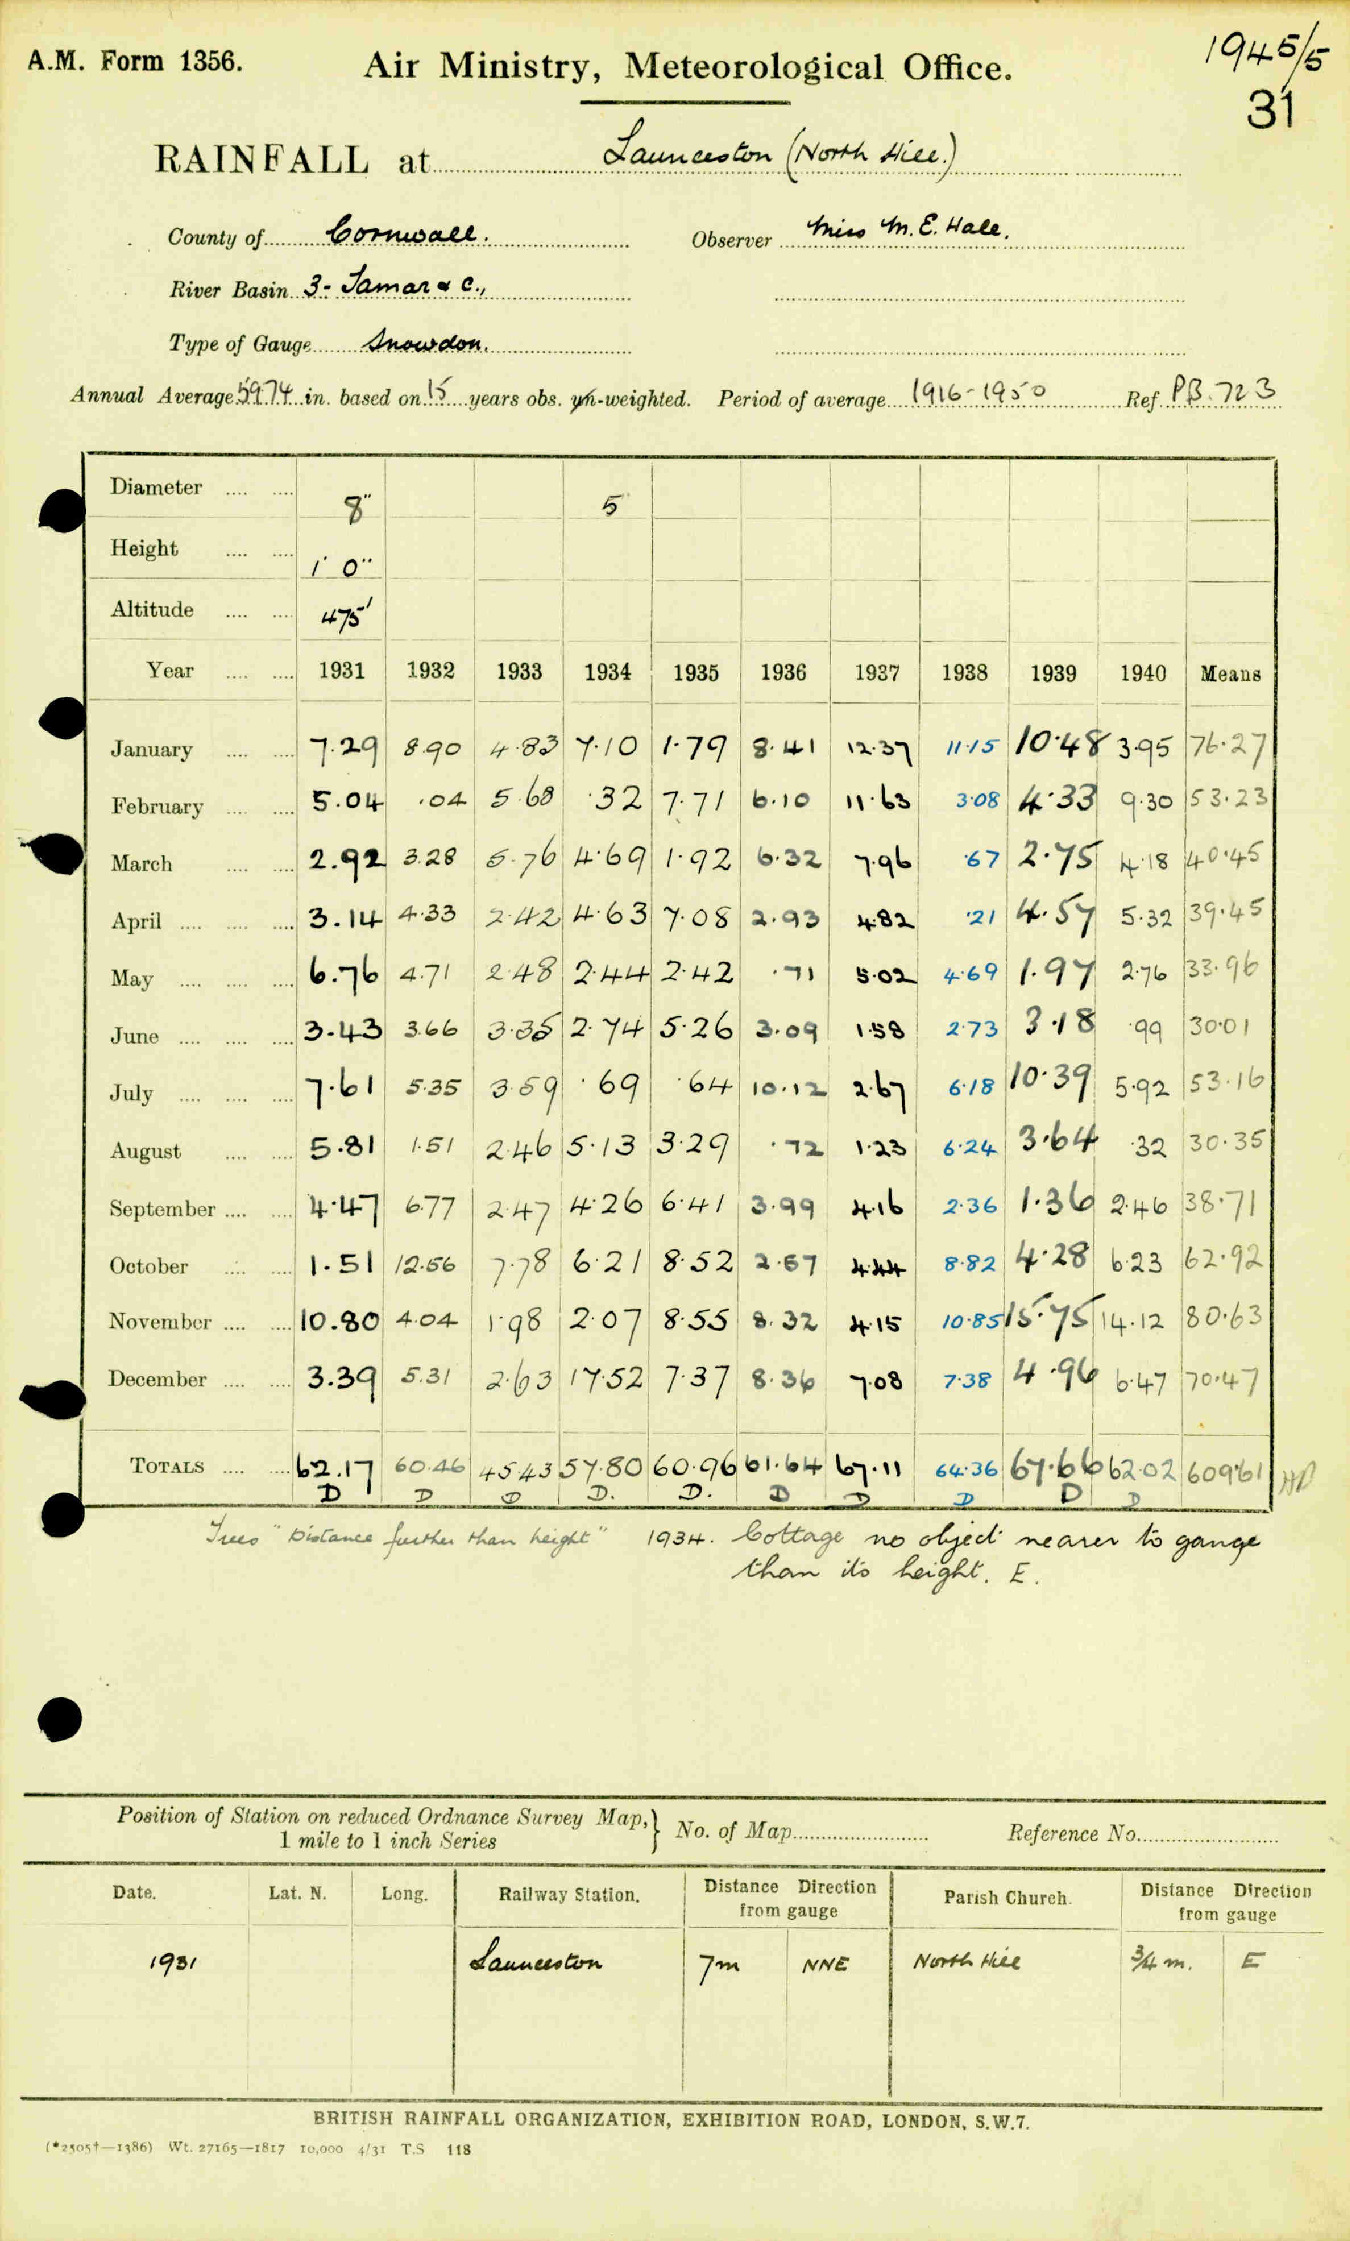 A.M. Form 1356.
Air Ministry, Meteorological Office.
1945/5
31
RAINFALL at Launceston (North Hill.)
County of Cornwall.
Observer Miss M. E. Hale.
River Basin 3- Tamar & c.,
Type of Gauge Snowdon.
Annual Average 59.74 in. based on 15 years obs. un-weighted. Period of average 1916-1950 Ref. PB. 723
Diameter 8" 5
Height 1' 0"
Altitude 475'
Year 1931 1932 1933 1934 1935 1936 1937 1938 1939 1940 Means
January 7.29 8.90 4.83 7.10 1.79 8.41 12.37 11.15 10.48 3.95 76.27
February 5.04 .04 5.68 .32 7.71 6.10 11.63 3.08 4.33 9.30 53.23
March 2.92 3.28 5.76 4.69 1.92 6.32 7.96 .67 2.75 4.18 40.45
April 3.14 4.33 2.42 4.63 7.08 2.93 4.82 .21 4.57 5.32 39.45
May 6.76 4.71 2.48 2.44 2.42 .71 5.02 4.69 1.97 2.76 33.96
June 3.43 3.66 3.35 2.74 5.26 3.09 1.58 2.73 3.18 .99 30.01
July 7.61 5.35 3.59 .69 .64 10.12 2.67 6.18 10.39 5.92 53.16
August 5.81 1.51 2.46 5.13 3.29 .72 1.23 6.24 3.64 .32 30.35
September 4.47 6.77 2.47 4.26 6.41 3.99 4.16 2.36 1.36 2.46 38.71
October 1.51 12.56 7.78 6.21 8.52 2.57 4.44 8.82 4.28 6.23 62.92
November 10.80 4.04 1.98 2.07 8.55 8.32 4.15 10.85 15.75 14.12 80.63
December 3.39 5.31 2.63 17.52 7.37 8.36 7.08 7.38 4.96 6.47 70.47
TOTALS 62.17 60.46 45.43 57.80 60.96 61.64 67.11 64.36 67.66 62.02 609.61
D D D D. D. D D D D D
Trees "Distance further than height" 1934. Cottage no object nearer to gauge
than its height. E.
Position of Station on reduced Ordnance Survey Map,
1 mile to 1 inch Series
No. of Map
Reference No.
Date. Lat. N. Long. Railway Station. Distance Direction from gauge Parish Church. Distance Direction from gauge
1931 Launceston 7m NNE North Hill 3/4 m. E
BRITISH RAINFALL ORGANIZATION, EXHIBITION ROAD, LONDON, S.W.7.
(*2505†—1386) Wt. 27165—1817 10,000 4/31 T.S 118